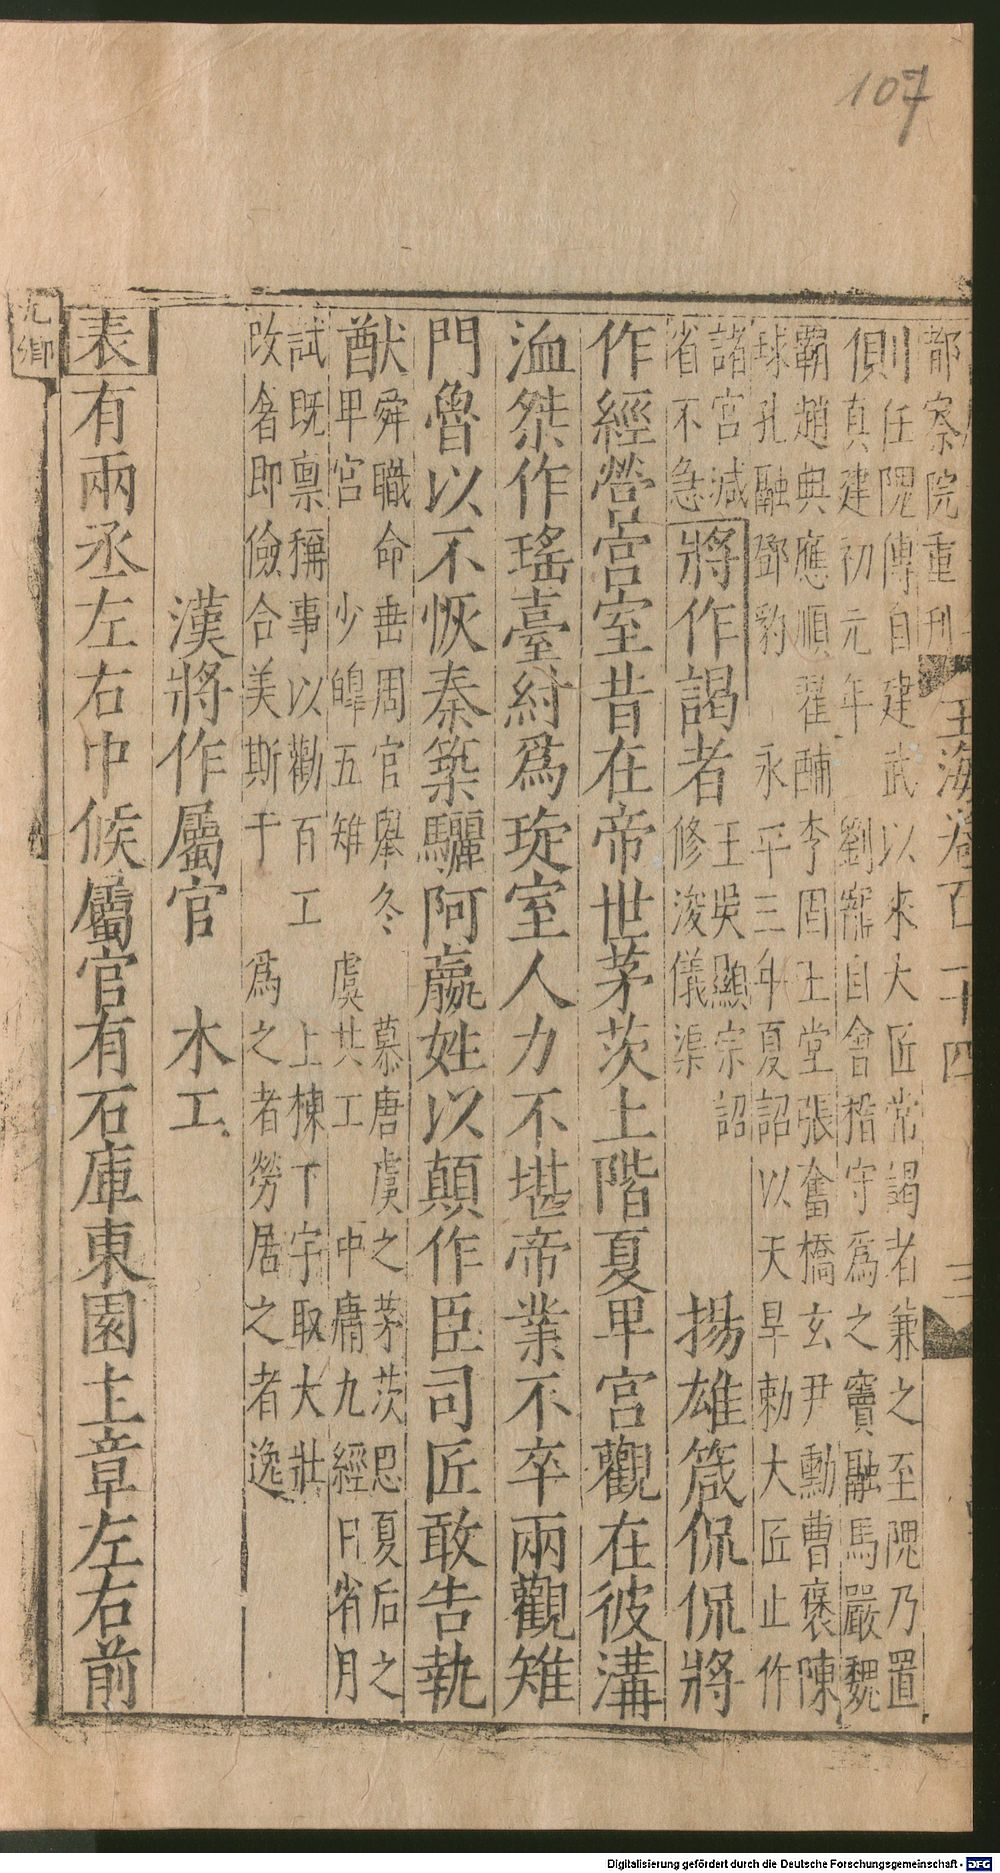 107
都察院重刊 玉海卷百二十四 三
則任隗傳自建武以來大匠常謁者兼之至隗乃置
真建初元年 劉寵自會稽守爲之竇融馬嚴魏
霸趙興應順翟酺李固王堂張奮橋玄尹勳曹褒陳
球孔融鄧豹 永平三年夏詔以天旱勅大匠止作
諸宮減
省不急
將作謁者
王吳顯宗詔
修浚儀渠
揚雄箴侃侃將
作經營宮室昔在帝世茅茨土階夏卑宮觀在彼溝
洫桀作瑤臺紂爲琁室人力不堪帝業不卒兩觀雉
門魯以不恢秦築驪阿嬴姓以顛作臣司匠敢告執
猷
舜職命垂周官舉冬 慕唐虞之茅茨思夏后之
卑宮 少皥五雉 虞共工 中庸九經日省月
試既稟稱事以勸百工 上棟下宇取大壯
改舍即儉合美斯干 爲之者勞居之者逸
漢將作屬官 木工
表有兩丞左右中候屬官有石庫東園主章左右前
九卿
Digitalisierung gefördert durch die Deutsche Forschungsgemeinschaft - DFG